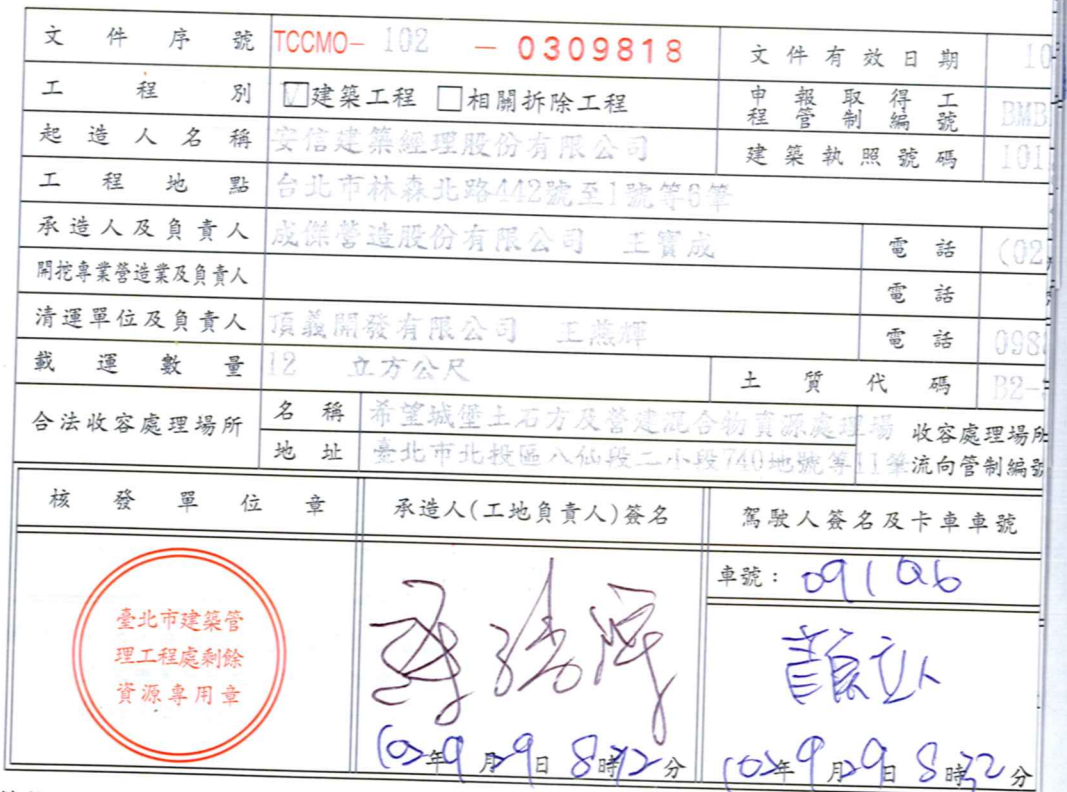 文件序號 TCCMO- 102 - 0309818 文件有效日期 10
工程別 ☑建築工程 □相關拆除工程 申報取得工程管制編號 BMB
起造人名稱 安信建築經理股份有限公司 建築執照號碼 101
工程地點 台北市林森北路442號至1號等6筆
承造人及負責人 成傑營造股份有限公司 王寶成 電話 (02
開挖專業營造業及負責人 電話
清運單位及負責人 頂義開發有限公司 王燕輝 電話 098
載運數量 12 立方公尺 土質代碼 B2-
合法收容處理場所 名稱 希望城堡土石方及營建混合物資源處理場 收容處理場所
地址 臺北市北投區八仙段二小段740地號等11筆 流向管制編號
核發單位章 承造人(工地負責人)簽名 駕駛人簽名及卡車車號
車號: 091Q6
臺北市建築管
理工程處剩餘
資源專用章
顏立人
102年9月29日8時 分 102年9月29日8時32分